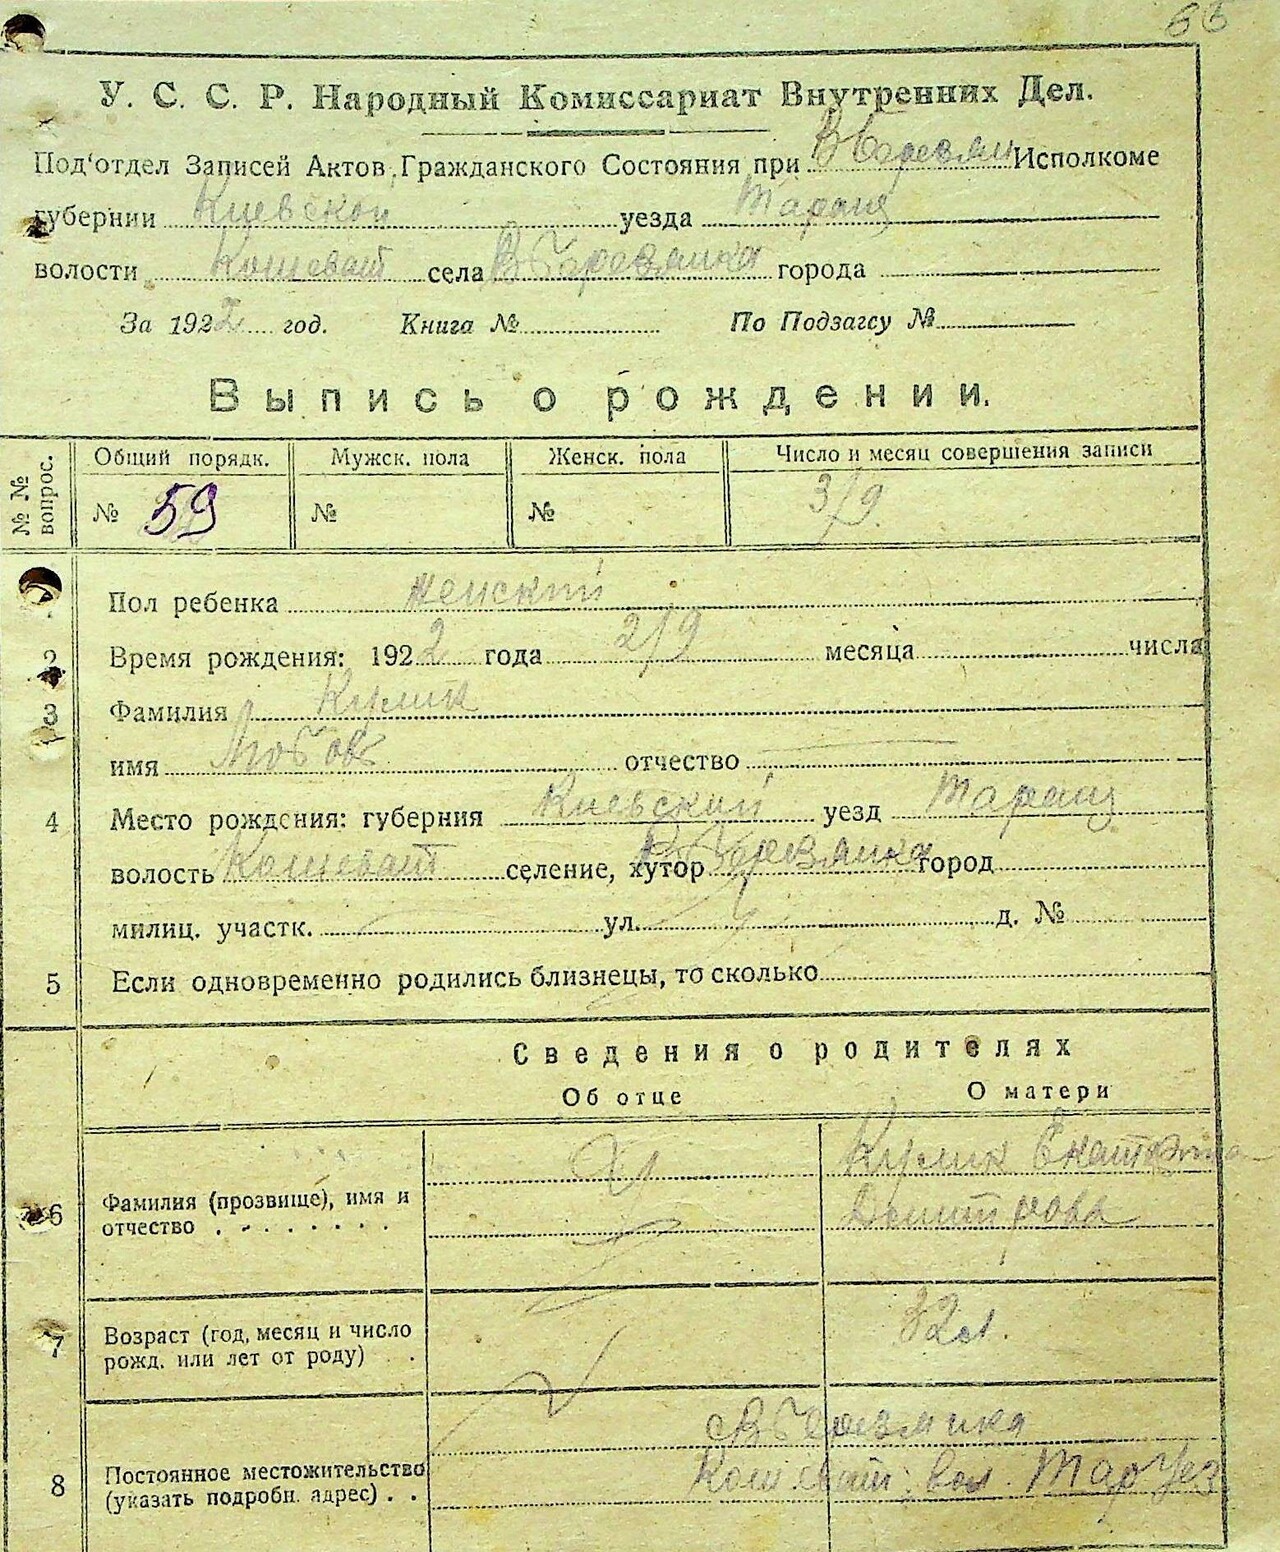 65
У. С. С. Р. Народный Комиссариат Внутренних Дел.
Под'отдел Записей Актов Гражданского Состояния при В Березян Исполкоме
губернии Киевской уезда Таращ
волости Кошеват села В Березянка города
За 1922 год. Книга № По Подзагсу №
Выпись о рождении.
№ № вопрос. Общий порядк. Мужск. пола Женск. пола Число и месяц совершения записи
№ 59 № № 3/9.
Пол ребенка женский
2 Время рождения: 1922 года 2/9 месяца числа
3 Фамилия Кулик
имя Любовь отчество
4 Место рождения: губерния Киевский уезд Таращ
волость Кошеват селение, хутор В Березянка город
милиц. участк. ул. д. №
5 Если одновременно родились близнецы, то сколько
Сведения о родителях
Об отце О матери
Кулик Екатерина
6 Фамилия (прозвище), имя и
отчество Дмитрова
7 Возраст (год, месяц и число 32 л.
рожд. или лет от роду)
с В Березянка
8 Постоянное местожительство Кошеват. вол. Тар Уез
(указать подробн. адрес)